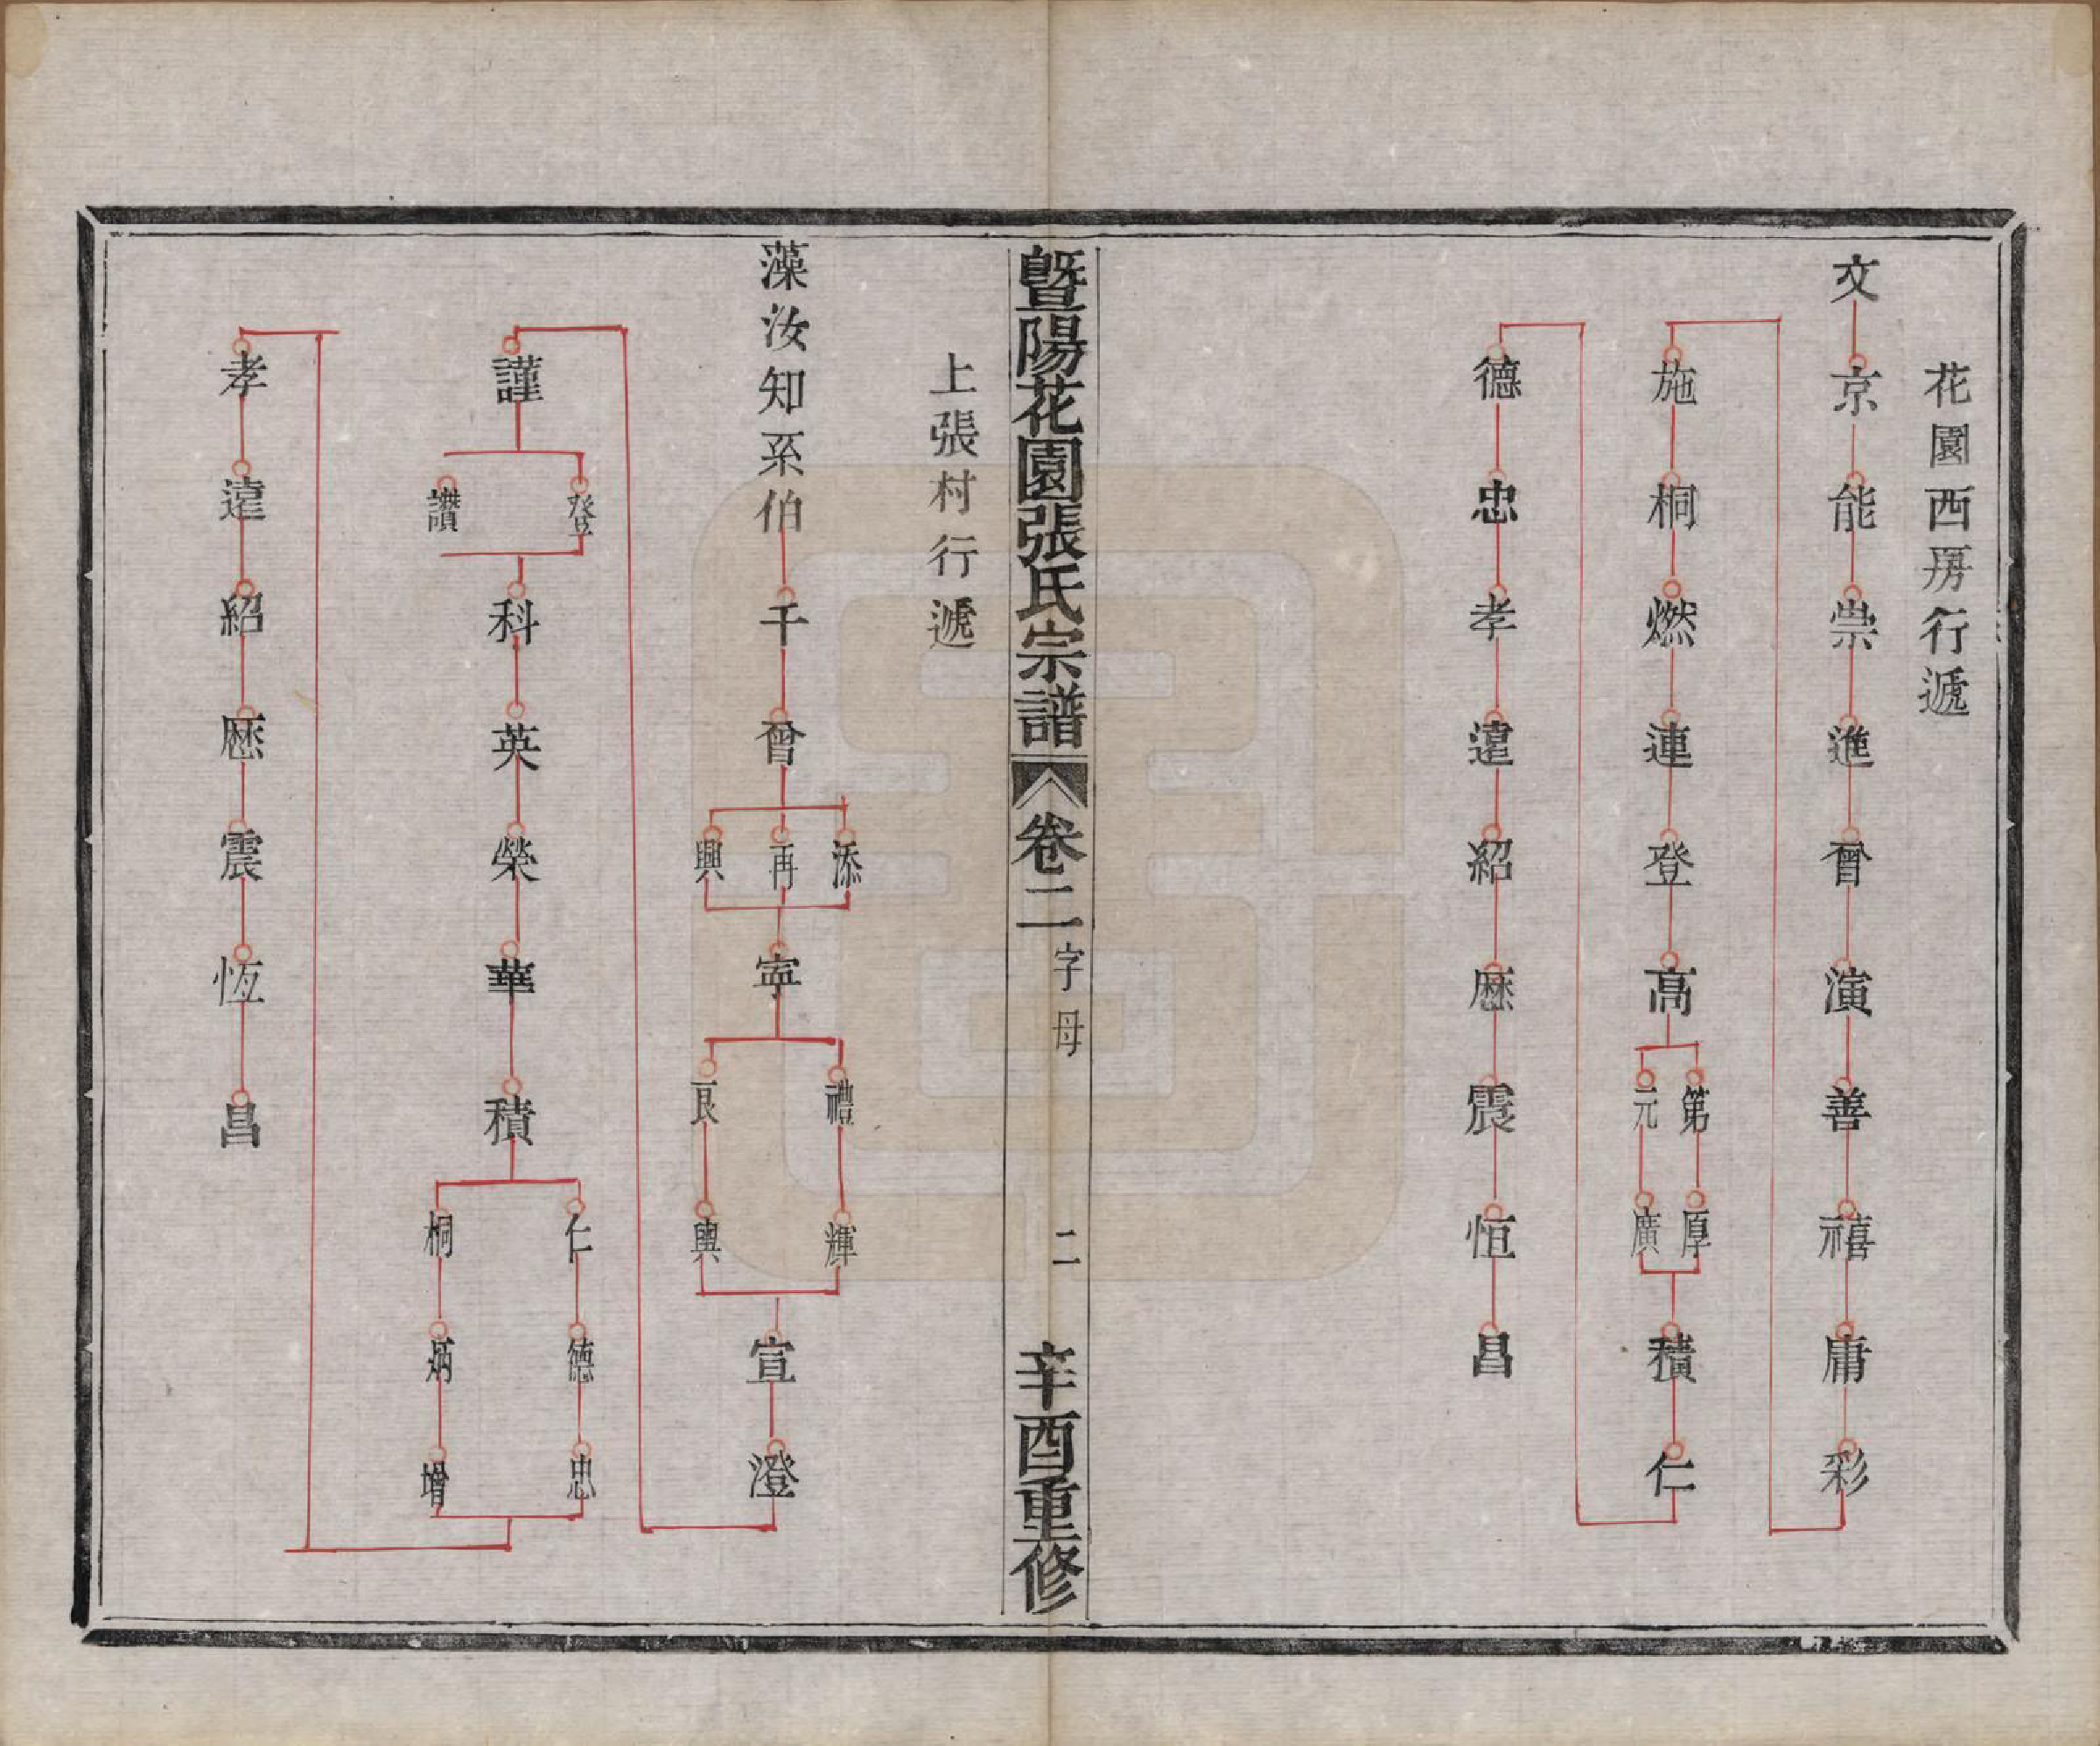 花園西房行遞
文京能崇進曾演善禧庸彩
施桐燃連登高
第厚
元廣
積仁
德忠孝遠紹歷震恒昌
暨陽花園張氏宗譜 卷二 字母 二 辛酉重修
上張村行遞
藻汝知系伯千曾
添再興
寧
禮輝
良興
宣澄
謹
登讚
科英榮華積
仁德忠
桐炳增
孝遠紹歷震恆昌